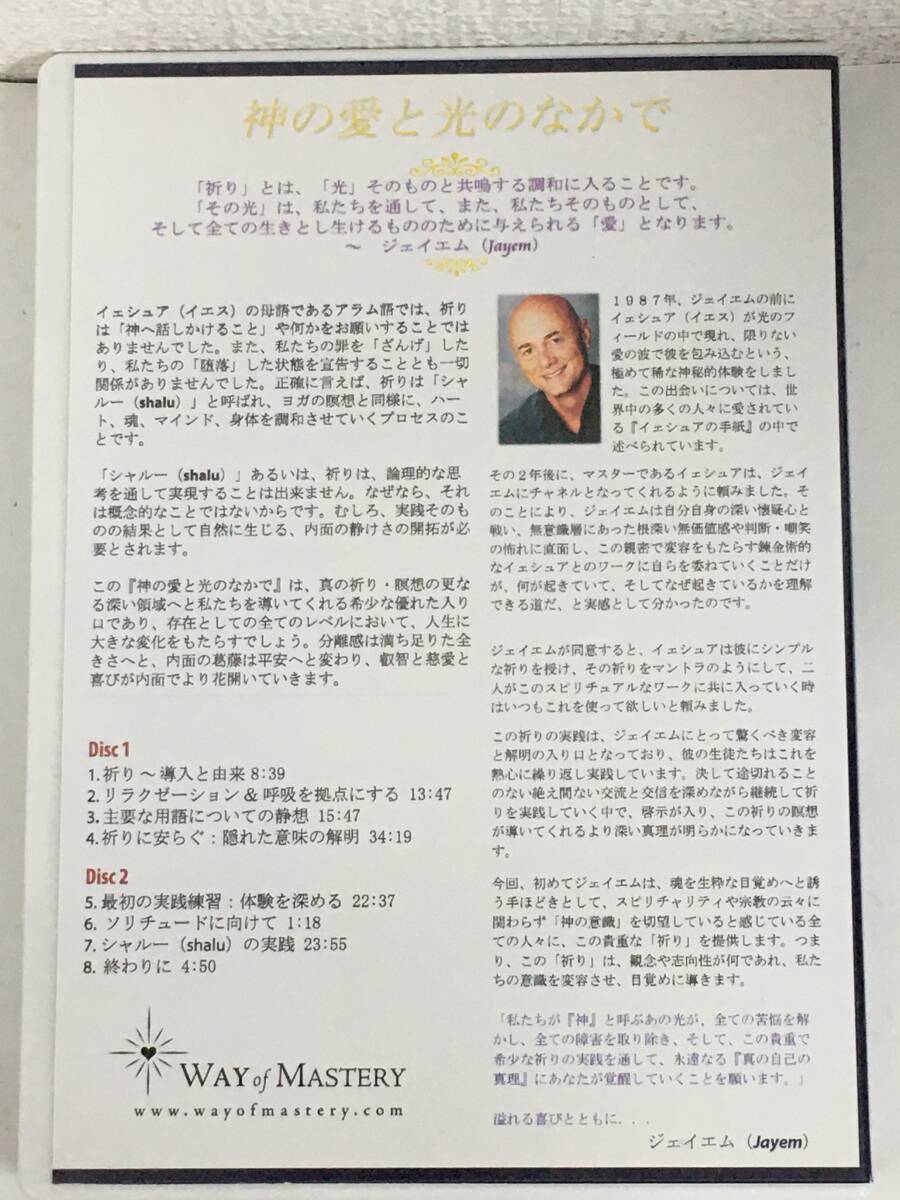 神の愛と光のなかで
「祈り」とは、「光」そのものと共鳴する調和に入ることです。
「その光」は、私たちを通して、また、私たちそのものとして、
そして全ての生きとし生けるもののために与えられる「愛」となります。
～ ジェイエム（Jayem）
イェシュア（イエス）の母語であるアラム語では、祈り
は「神へ話しかけること」や何かをお願いすることでは
ありませんでした。また、私たちの罪を「ざんげ」した
り、私たちの「堕落」した状態を宣告することとも一切
関係がありませんでした。正確に言えば、祈りは「シャ
ルー（shalu）」と呼ばれ、ヨガの瞑想と同様に、ハー
ト、魂、マインド、身体を調和させていくプロセスのこ
とです。
「シャルー（shalu）」あるいは、祈りは、論理的な思
考を通して実現することは出来ません。なぜなら、それ
は概念的なことではないからです。むしろ、実践そのも
のの結果として自然に生じる、内面の静けさの開拓が必
要とされます。
この『神の愛と光のなかで』は、真の祈り・瞑想の更な
る深い領域へと私たちを導いてくれる希少な優れた入り
口であり、存在としての全てのレベルにおいて、人生に
大きな変化をもたらすでしょう。分離感は満ち足りた全
きさへと、内面の葛藤は平安へと変わり、叡智と慈愛と
喜びが内面でより花開いていきます。
Disc 1
1. 祈り ～ 導入と由来 8:39
2. リラクゼーション & 呼吸を拠点にする 13:47
3. 主要な用語についての静想 15:47
4. 祈りに安らぐ：隠れた意味の解明 34:19
Disc 2
5. 最初の実践練習：体験を深める 22:37
6. ソリチュードに向けて 1:18
7. シャルー（shalu）の実践 23:55
8. 終わりに 4:50
WAY of MASTERY
www.wayofmastery.com
１９８７年、ジェイエムの前に
イェシュア（イエス）が光のフ
ィールドの中で現れ、限りない
愛の波で彼を包み込むという、
極めて稀な神秘的体験をしまし
た。この出会いについては、世
界中の多くの人々に愛されてい
る『イェシュアの手紙』の中で
述べられています。
その２年後に、マスターであるイェシュアは、ジェイ
エムにチャネルとなってくれるように頼みました。そ
のことにより、ジェイエムは自分自身の深い懐疑心と
戦い、無意識層にあった根深い無価値感や判断・嘲笑
の怖れに直面し、この親密で変容をもたらす錬金術的
なイェシュアとのワークに自らを委ねていくことだけ
が、何が起きていて、そしてなぜ起きているかを理解
できる道だ、と実感として分かったのです。
ジェイエムが同意すると、イェシュアは彼にシンプル
な祈りを授け、その祈りをマントラのようにして、二
人がこのスピリチュアルなワークに共に入っていく時
はいつもこれを使って欲しいと頼みました。
この祈りの実践は、ジェイエムにとって驚くべき変容
と解明の入り口となっており、彼の生徒たちはこれを
熱心に繰り返し実践しています。決して途切れること
のない絶え間ない交流と交信を深めながら継続して祈
りを実践していく中で、啓示が入り、この祈りの瞑想
が導いてくれるより深い真理が明らかになっていきま
す。
今回、初めてジェイエムは、魂を生粋な目覚めへと誘
う手ほどきとして、スピリチャリティや宗教の云々に
関わらず「神の意識」を切望していると感じている全
ての人々に、この貴重な「祈り」を提供します。つま
り、この「祈り」は、観念や志向性が何であれ、私た
ちの意識を変容させ、目覚めに導きます。
「私たちが『神』と呼ぶあの光が、全ての苦悩を解
かし、全ての障害を取り除き、そして、この貴重で
希少な祈りの実践を通して、永遠なる『真の自己の
真理』にあなたが覚醒していくことを願います。」
溢れる喜びとともに．．．
ジェイエム（Jayem）